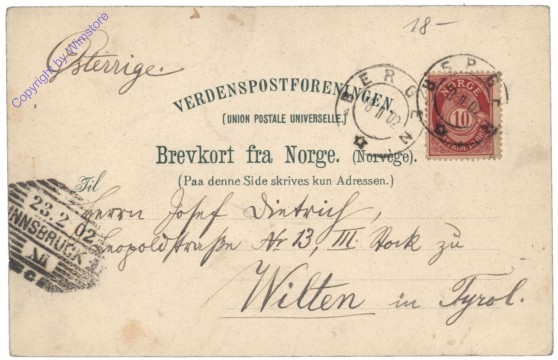 18-
Copyright by Wimstore
Österrige.
VERDENSPOSTFORENINGEN.
(UNION POSTALE UNIVERSELLE.)
BERGEN
II 02
BERGEN
NORGE
10
Brevkort fra Norge. (Norvège).
(Paa denne Side skrives kun Adressen.)
Til
Herrn Josef Dietrich,
Leopoldstraße Nr 13, III. Stock zu
Wilten in Tyrol.
23.2.02
INNSBRUCK